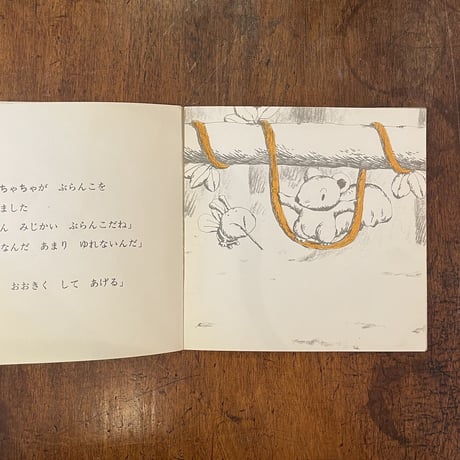 ちゃちゃが　ぶらんこを
ました
ん　みじかい　ぶらんこだね」
なんだ　あまり　ゆれないんだ」
おおきく　して　あげる」